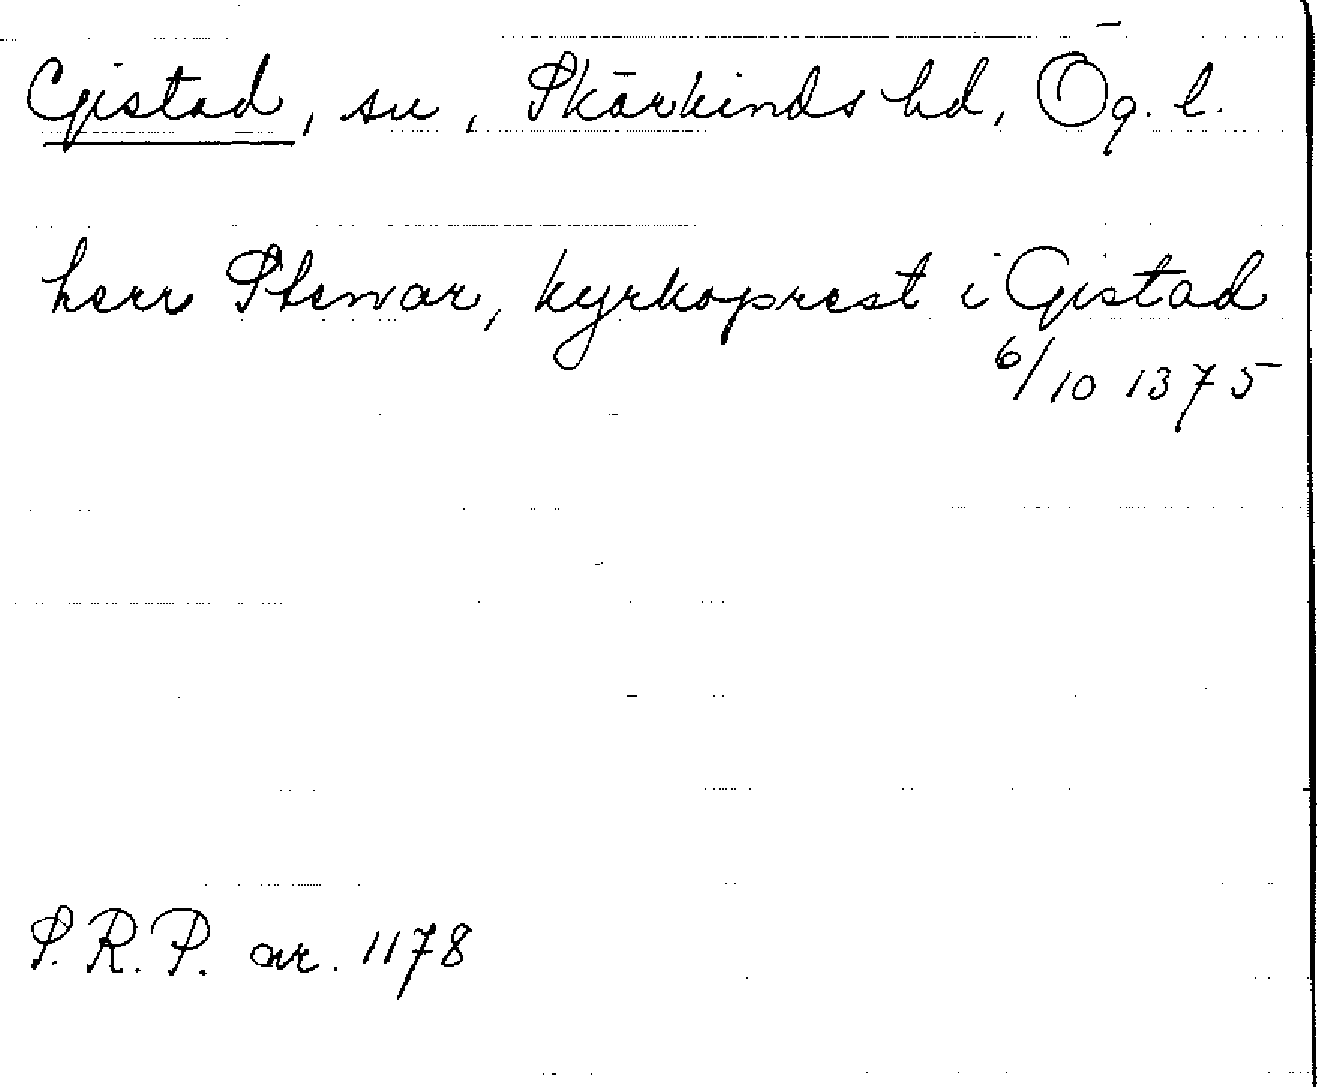 Gistad, sn, Skärkinds hd, Ög. l.
herr Stenvar, kyrkoprest i Gistad
6/10 1375
S.R.P. nr. 1178